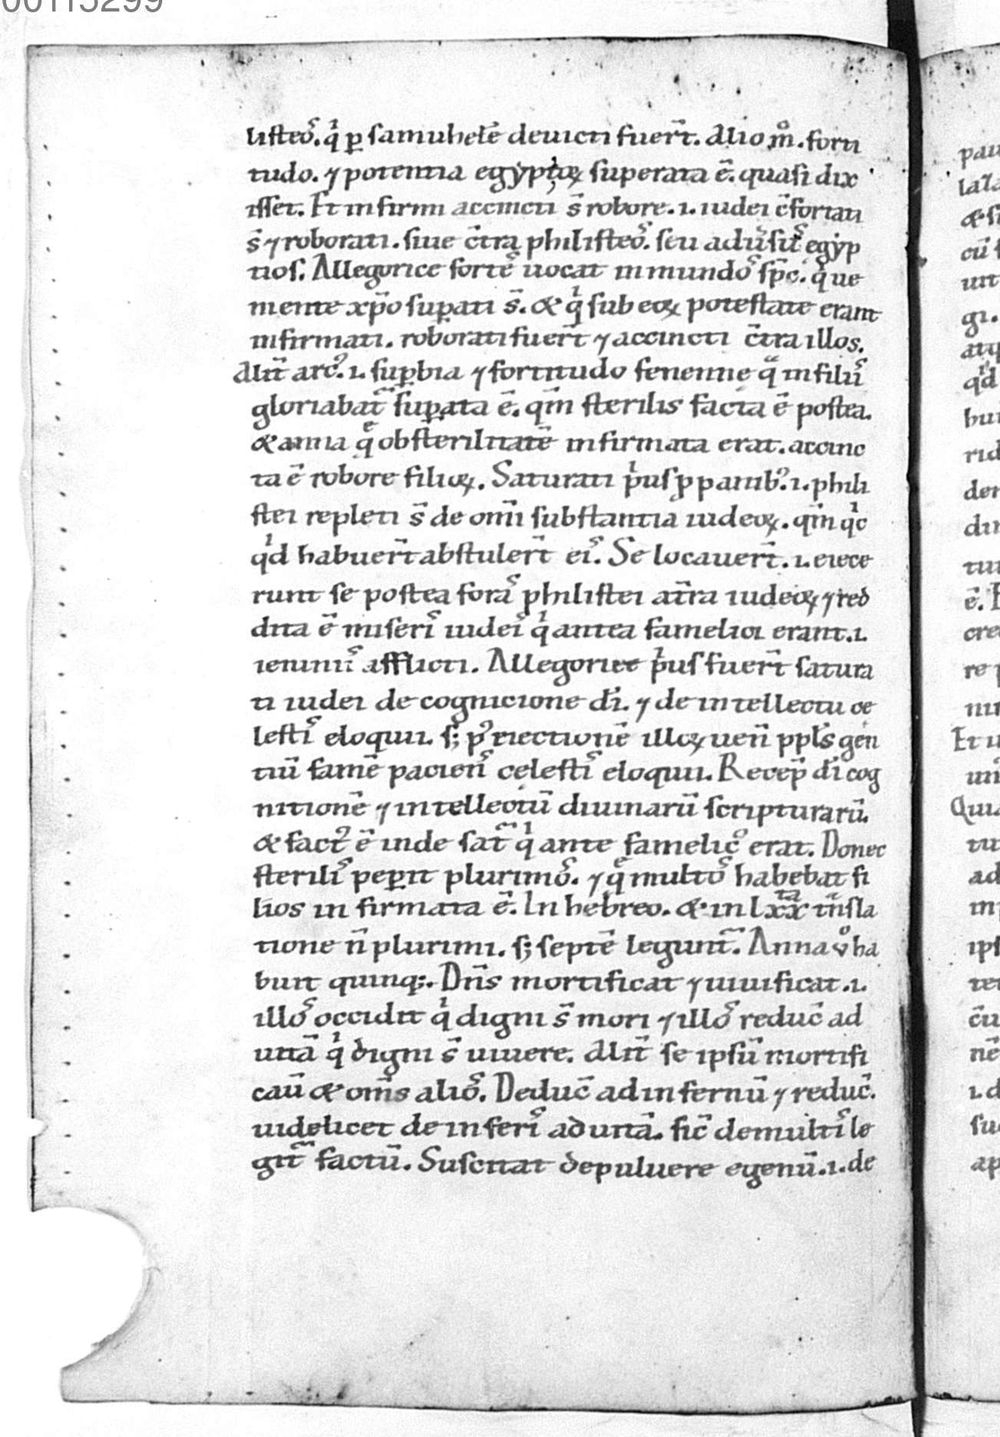 00115299
listeoꝰ. qͥ ꝑ samuhelē deuicti fuer̄t. Alio m̊. forti
tudo. ⁊ potentia egyptioꝝ superata ē. quasi dix
isset. Et infirmi accincti s̄ robore. .i. iudei c̄fortati
s̄ ⁊ roborati. siue c̄tra philisteoꝰ. seu adūsuꝰ egyp
tioꝰ. Allegorice forteꝰ uocat inmundoꝰ sp̄c. qͥ ue
mente xp̄o suꝑati s̄. & qͥ sub eoꝝ potestate erant
infirmati. roborati fuer̄t ⁊ accincti c̄tra illos.
Alit̄ arcꝰ. .i. suꝑbia ⁊ fortitudo fenenne q̄ in filiīꝰ
gloriabat᷑ suꝑata ē. qm̄ sterilis facta ē postea.
& anna q̄ ob sterilitatē infirmata erat. accinc
ta ē robore filioꝝ. Saturati pͥus ꝓ panibꝰ. .i. phili
stei repleti s̄ de om̄i substantia iudeoꝝ. qm̄ qͥc
qͥd habuer̄t abstuler̄t eiꝰ. Se locauer̄t. .i. eiece
runt se postea foraꝰ philistei at̄ra iudeoꝝ ⁊ red
dita ē miseriꝰ iudeiꝰ qͥ antea famelici erant. .i.
ieiuniīꝰ afflicti. Allegorice pͥus fuer̄t satura
ti iudei de cognicione dī. ⁊ de intellectu ce
lestiꝰ eloquii. s; pꝰ reiectionē illoꝝ uen̄ ppl̄s gen
tiū famē pacienꝰ celestiꝰ eloquii. Recep̄ dī cog
nitionē ⁊ intellectū diuinarū scripturarū.
& factꝰ ē inde sat᷑ qͥ ante famelicꝰ erat. Donec
steriliꝰ peꝑit plurimoꝰ. ⁊ q̄ multoꝰ habebat fi
lios infirmata ē. In hebreo. & in lxxta t̄nsla
tione n̄ plurimi. s; septē legunt᷑. Anna v̊ ha
buit quinq;. Dn̄s mortificat ⁊ uiuificat. .i.
illoꝰ occidit qͥ digni s̄ mori ⁊ illoꝰ reduc̄ ad
uitā qͥ digni s̄ uiuere. Alit̄ se ipsū mortifi
caū & om̄s alioꝰ. Deduc̄ ad infernū ⁊ reduc̄.
uidelicet de inferiꝰ ad uitā. sic̄ de multiꝰ le
git᷑ factū. Suscitat de puluere egenū. .i. de